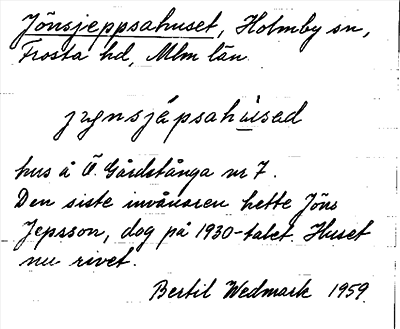 Jönsjeppsahuset, Holmby sn,
Frosta hd, Mlm län.
hus å Ö. Gårdstånga nr 7.
Den siste invånaren hette Jöns
Jepsson, dog på 1930-talet. Huset
nu rivet.
Bertil Wedmark 1959.